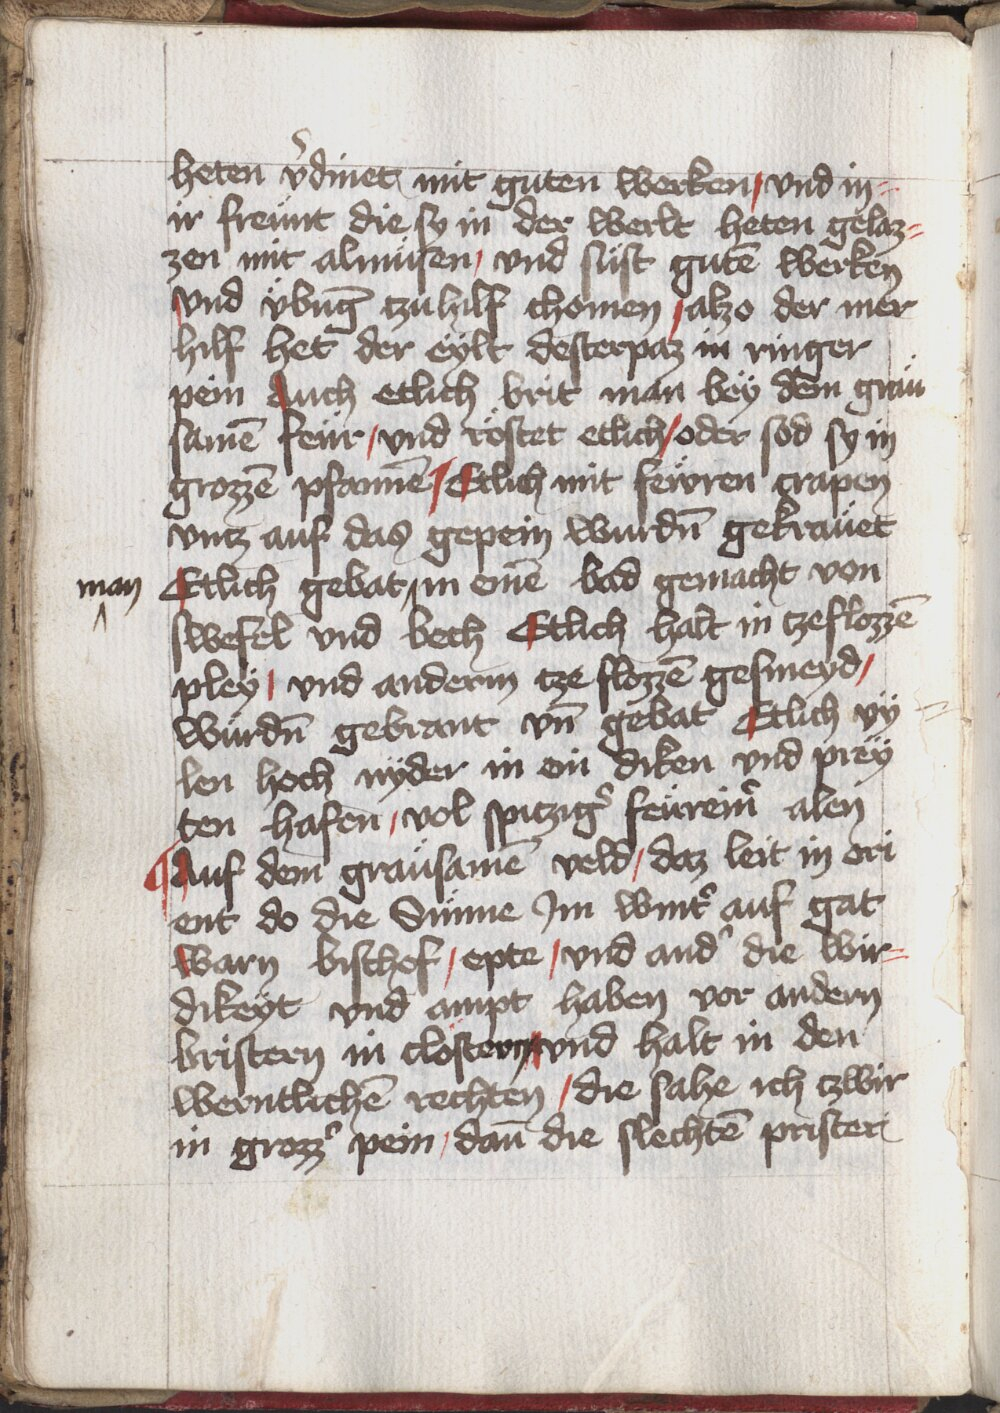 heten v̉dinet mit guten werken / vnd in=
ir freünt die sy in der werlt heten gelaz=
zen mit almüsen / vnd süst gutē werken
vnd v̈būg tzu hilf chomen / alzo der mer
hilf het der eylt desterpaz in ringer
pein Auch etlich brit man bey dem graü
samē feür / vnd röstet etlich / oder sod sy in
grozzē pfannē / Etlich mit feẅren crapen
vntz auf das gepein wurdn̄ gekraüet
man
Etlich gebat / in einē bad gemacht von
swefel vnd bech Etlich halt in tzeflozzē
pleÿ / vnd anderm tze flozzē gesmeyd /
würdn̄ gebrant vn̄ gebat Etlich vÿ =
len hoch nÿder in ein diken vnd preÿ
ten hafen / vol spitzigꝰ feüreinꝰ alen
¶ Auf dem graüsamē veld / daz leit in ori
ent do die Sunne Im wintꝰ auf gat
warn bischof / epte / vnd andꝰ die wir=
dikeÿt vnd ampt haben vor andern
bristern in clöstern / vnd halt in den
werntlichē rechten / die sahe ich tzwir
in grozzꝰ pein / dan̄ die slechtē prister